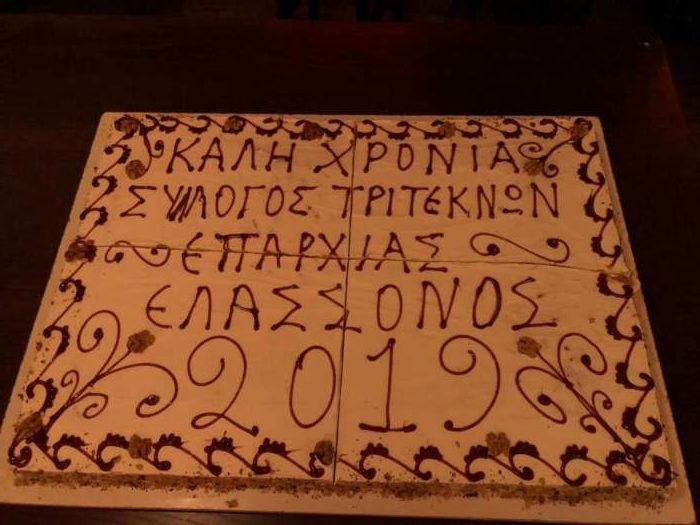 ΚΑΛΗ ΧΡΟΝΙΑ
ΣΥΛΛΟΓΟΣ ΤΡΙΤΕΚΝΩΝ
ΕΠΑΡΧΙΑΣ
ΕΛΑΣΣΟΝΟΣ
2019